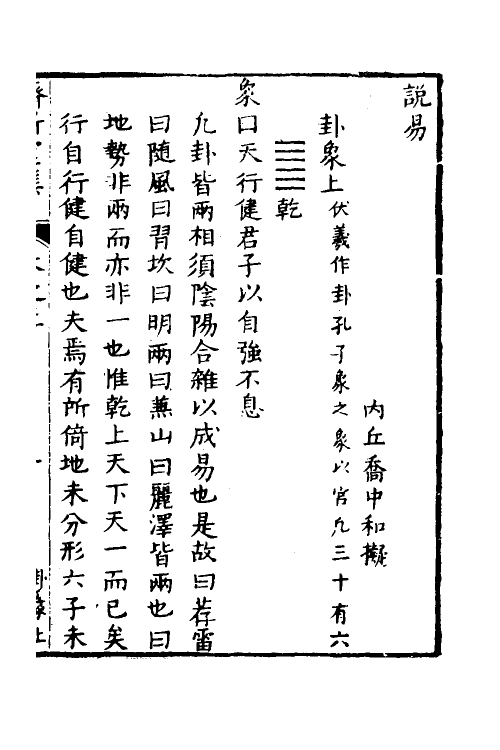 說易
內丘喬中和擬
卦象上伏羲作卦孔子象之象以官凡三十有六
䷀乾
象曰天行健君子以自強不息
凡卦皆兩相須陰陽合雜以成易也是故曰荐雷
曰随風曰習坎曰明兩曰蒹山曰麗澤皆兩也曰
地勢非兩而亦非一也惟乾上天下天一而已矣
行自行健自健也夫焉有所倚地未分形六子未